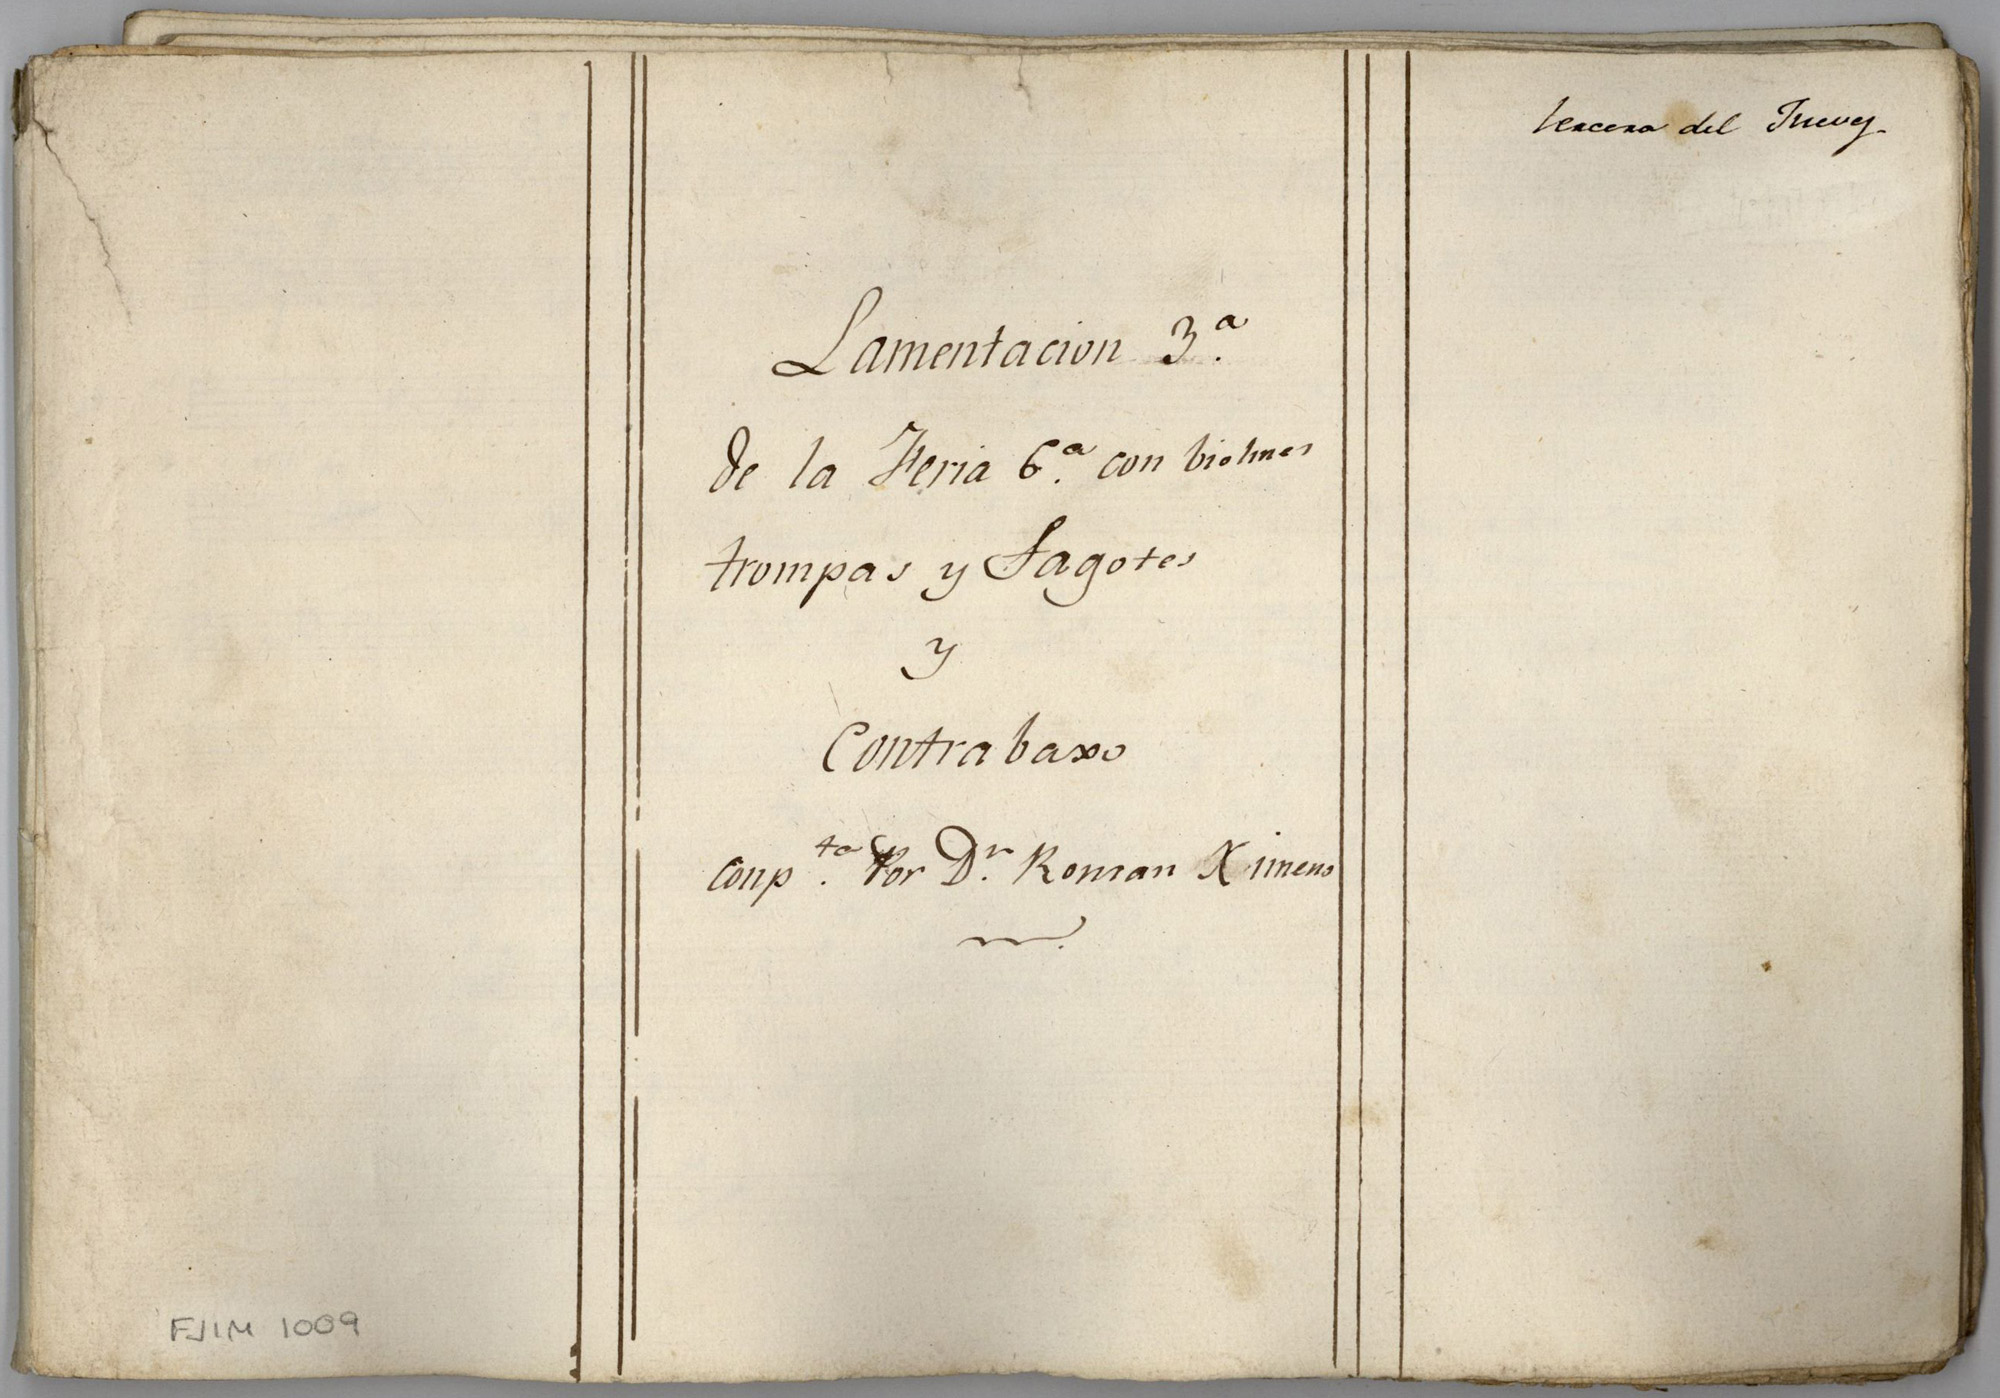 tercera del Juevez
Lamentacion 3.ª
de la Feria 6.ª con biolines
trompas y Fagotes
y
Contrabaxo
Conp.ta Por Dr. Roman Ximeno
FJIM 1009